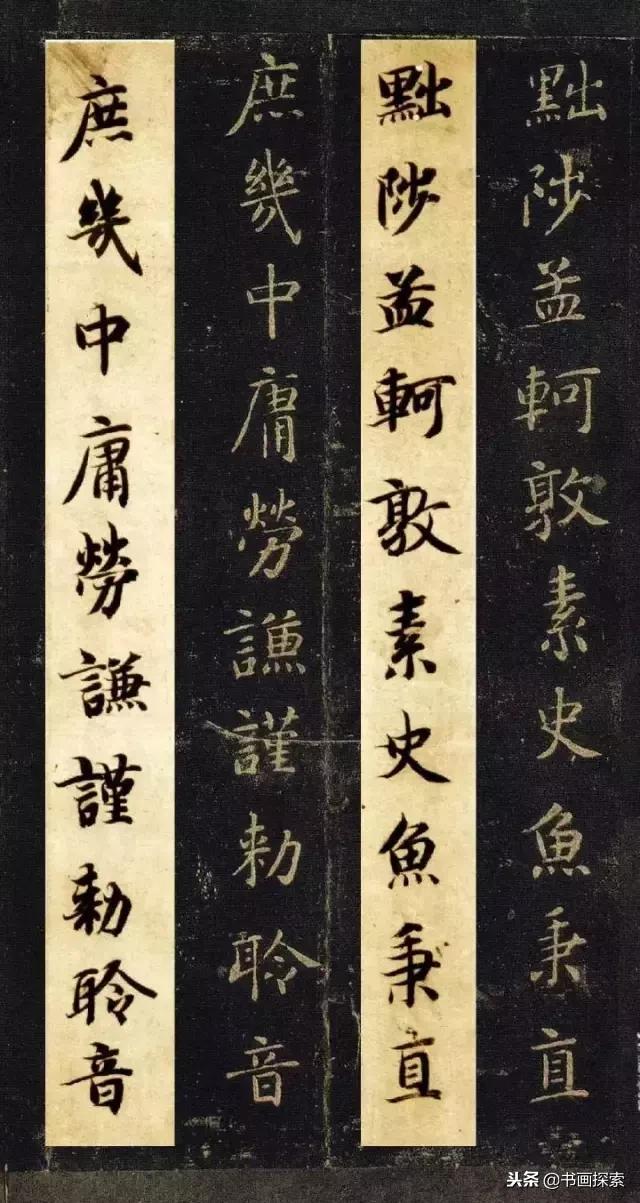 黜陟孟軻敦素史魚秉直
黜陟孟軻敦素史魚秉直
庶幾中庸勞謙謹勑聆音
庶幾中庸勞謙謹勑聆音
头条 @书画探索